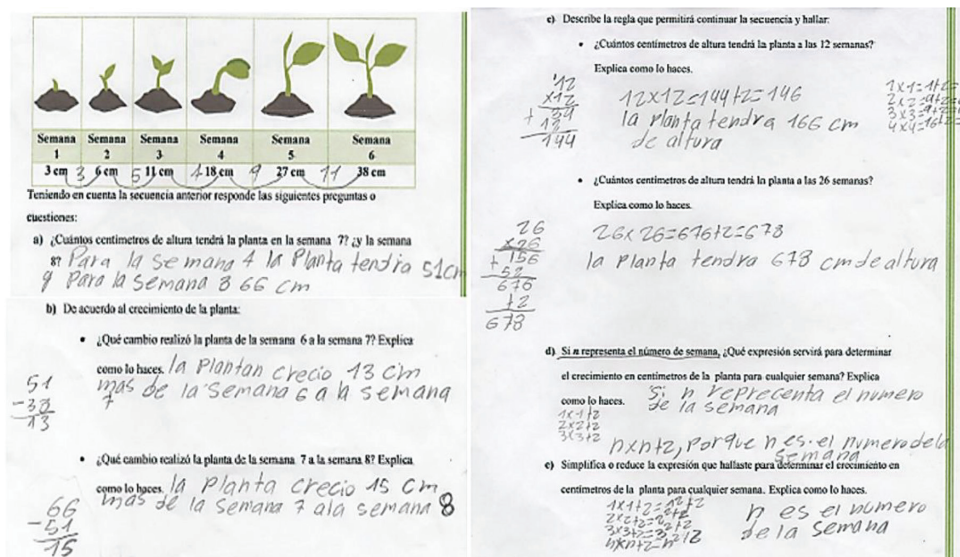 Semana Semana Semana Semana Semana Semana
1 2 3 4 5 6
3 cm 3 6 cm 5 11 cm 7 18 cm 9 27 cm 11 38 cm
Teniendo en cuenta la secuencia anterior responde las siguientes preguntas o
cuestiones:
a) ¿Cuántos centímetros de altura tendrá la planta en la semana 7? ¿y la semana
8? Para la semana 7 la Planta tendria 51cm
y para la semana 8 66 cm
b) De acuerdo al crecimiento de la planta:
• ¿Qué cambio realizó la planta de la semana 6 a la semana 7? Explica
como lo haces. la Plantan crecio 13 cm
mas de la semana 6 a la semana
7
51
-38
13
• ¿Qué cambio realizó la planta de la semana 7 a la semana 8? Explica
como lo haces. la Planta crecio 15 cm
mas de la semana 7 ala semana 8
66
-51
15
c) Describe la regla que permitirá continuar la secuencia y hallar:
• ¿Cuántos centímetros de altura tendrá la planta a las 12 semanas?
Explica como lo haces.
12
x12
+ 24
12
144
12x12=144+2=146
la planta tendra 166 cm
de altura
1x1=1+2=
2x2=4+2=
3x3=9+2=
4x4=16+2=
• ¿Cuántos centímetros de altura tendrá la planta a las 26 semanas?
Explica como lo haces.
26
x26
+ 156
52
676
+2
678
26x26=676+2=678
la planta tendra 678 cm de altura
d) Si n representa el número de semana, ¿Qué expresión servirá para determinar
el crecimiento en centímetros de la planta para cualquier semana? Explica
como lo haces. Si n reprecenta el numero
de la semana
1x1+2
2x2+2
3x3+2
nxn+2, porque n es el numero dela
semana
e) Simplifica o reduce la expresión que hallaste para determinar el crecimiento en
centímetros de la planta para cualquier semana. Explica como lo haces.
1x1+2=1²+2
2x2+2=2²+2
3x3+2=3²+2
nxn+2=n²+2
n es el numero
de la semana